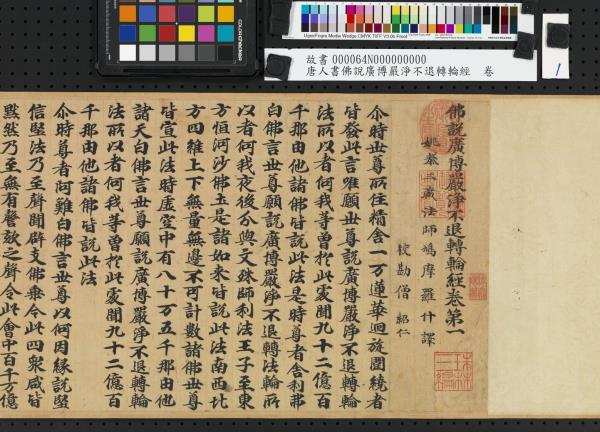 UgraFogra Media Wedge CMYK TIFF V3.0b Proof
故書 000064N000000000
唐人書佛說廣博嚴淨不退轉輪經 卷
1
佛說廣博嚴淨不退轉輪經卷第一
姚秦三藏法師鳩摩羅什譯
校勘僧 紹仁
尒時世尊所住精舍一万蓮華迴旋圍繞者
皆發此言唯願世尊說廣博嚴淨不退轉輪
法所以者何我等曾於此處聞九十二億百
千那由他諸佛皆說此法是時尊者舍利弗
白佛言世尊願說廣博嚴淨不退轉法輪所
以者何我夜後分與文殊師利法王子至東
方恒河沙佛土是諸如來皆說此法南西北
方四維上下無量無邊不可計數諸佛世尊
皆宣此法時虛空中有八十万五千那由他
諸天白佛言世尊願說廣博嚴淨不退轉輪
法所以者何我等曾於此處聞九十二億百
千那由他諸佛皆說此法
尒時尊者阿難白佛言世尊以何因緣說堅
信堅法乃至聲聞辟支佛乘今此四衆咸皆
默然乃至無有謦欬之聲令此會中百千万億